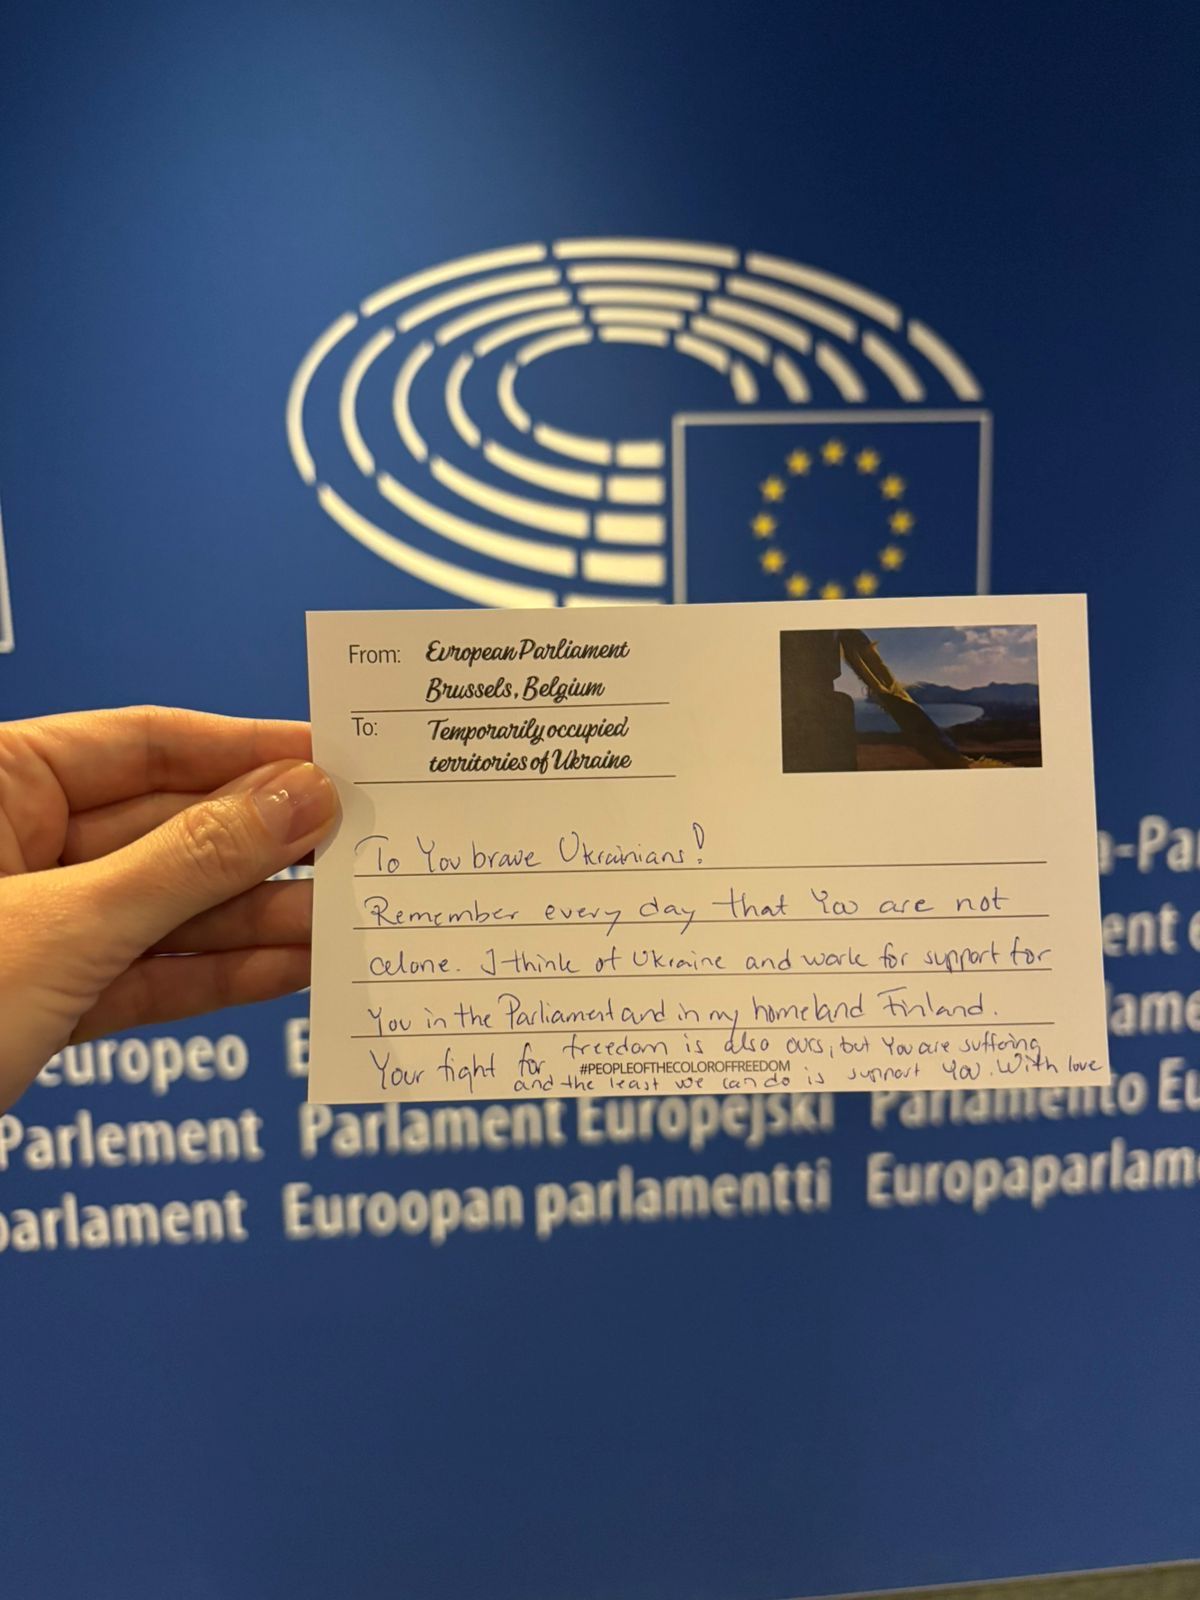 From: European Parliament
Brussels, Belgium
To: Temporarily occupied
territories of Ukraine
To You brave Ukrainians!
Remember every day that You are not
alone. I think of Ukraine and work for support for
You in the Parliament and in my homeland Finland.
Your fight for freedom is also ours, but You are suffering
and the least we can do is support You. With love
#PEOPLEOFTHECOLOROFFREEDOM
-Pa
ent
europeo E
ame
Parlement Parlament Europejski Parlamento Eu
parlament Euroopan parlamentti Europaparlam